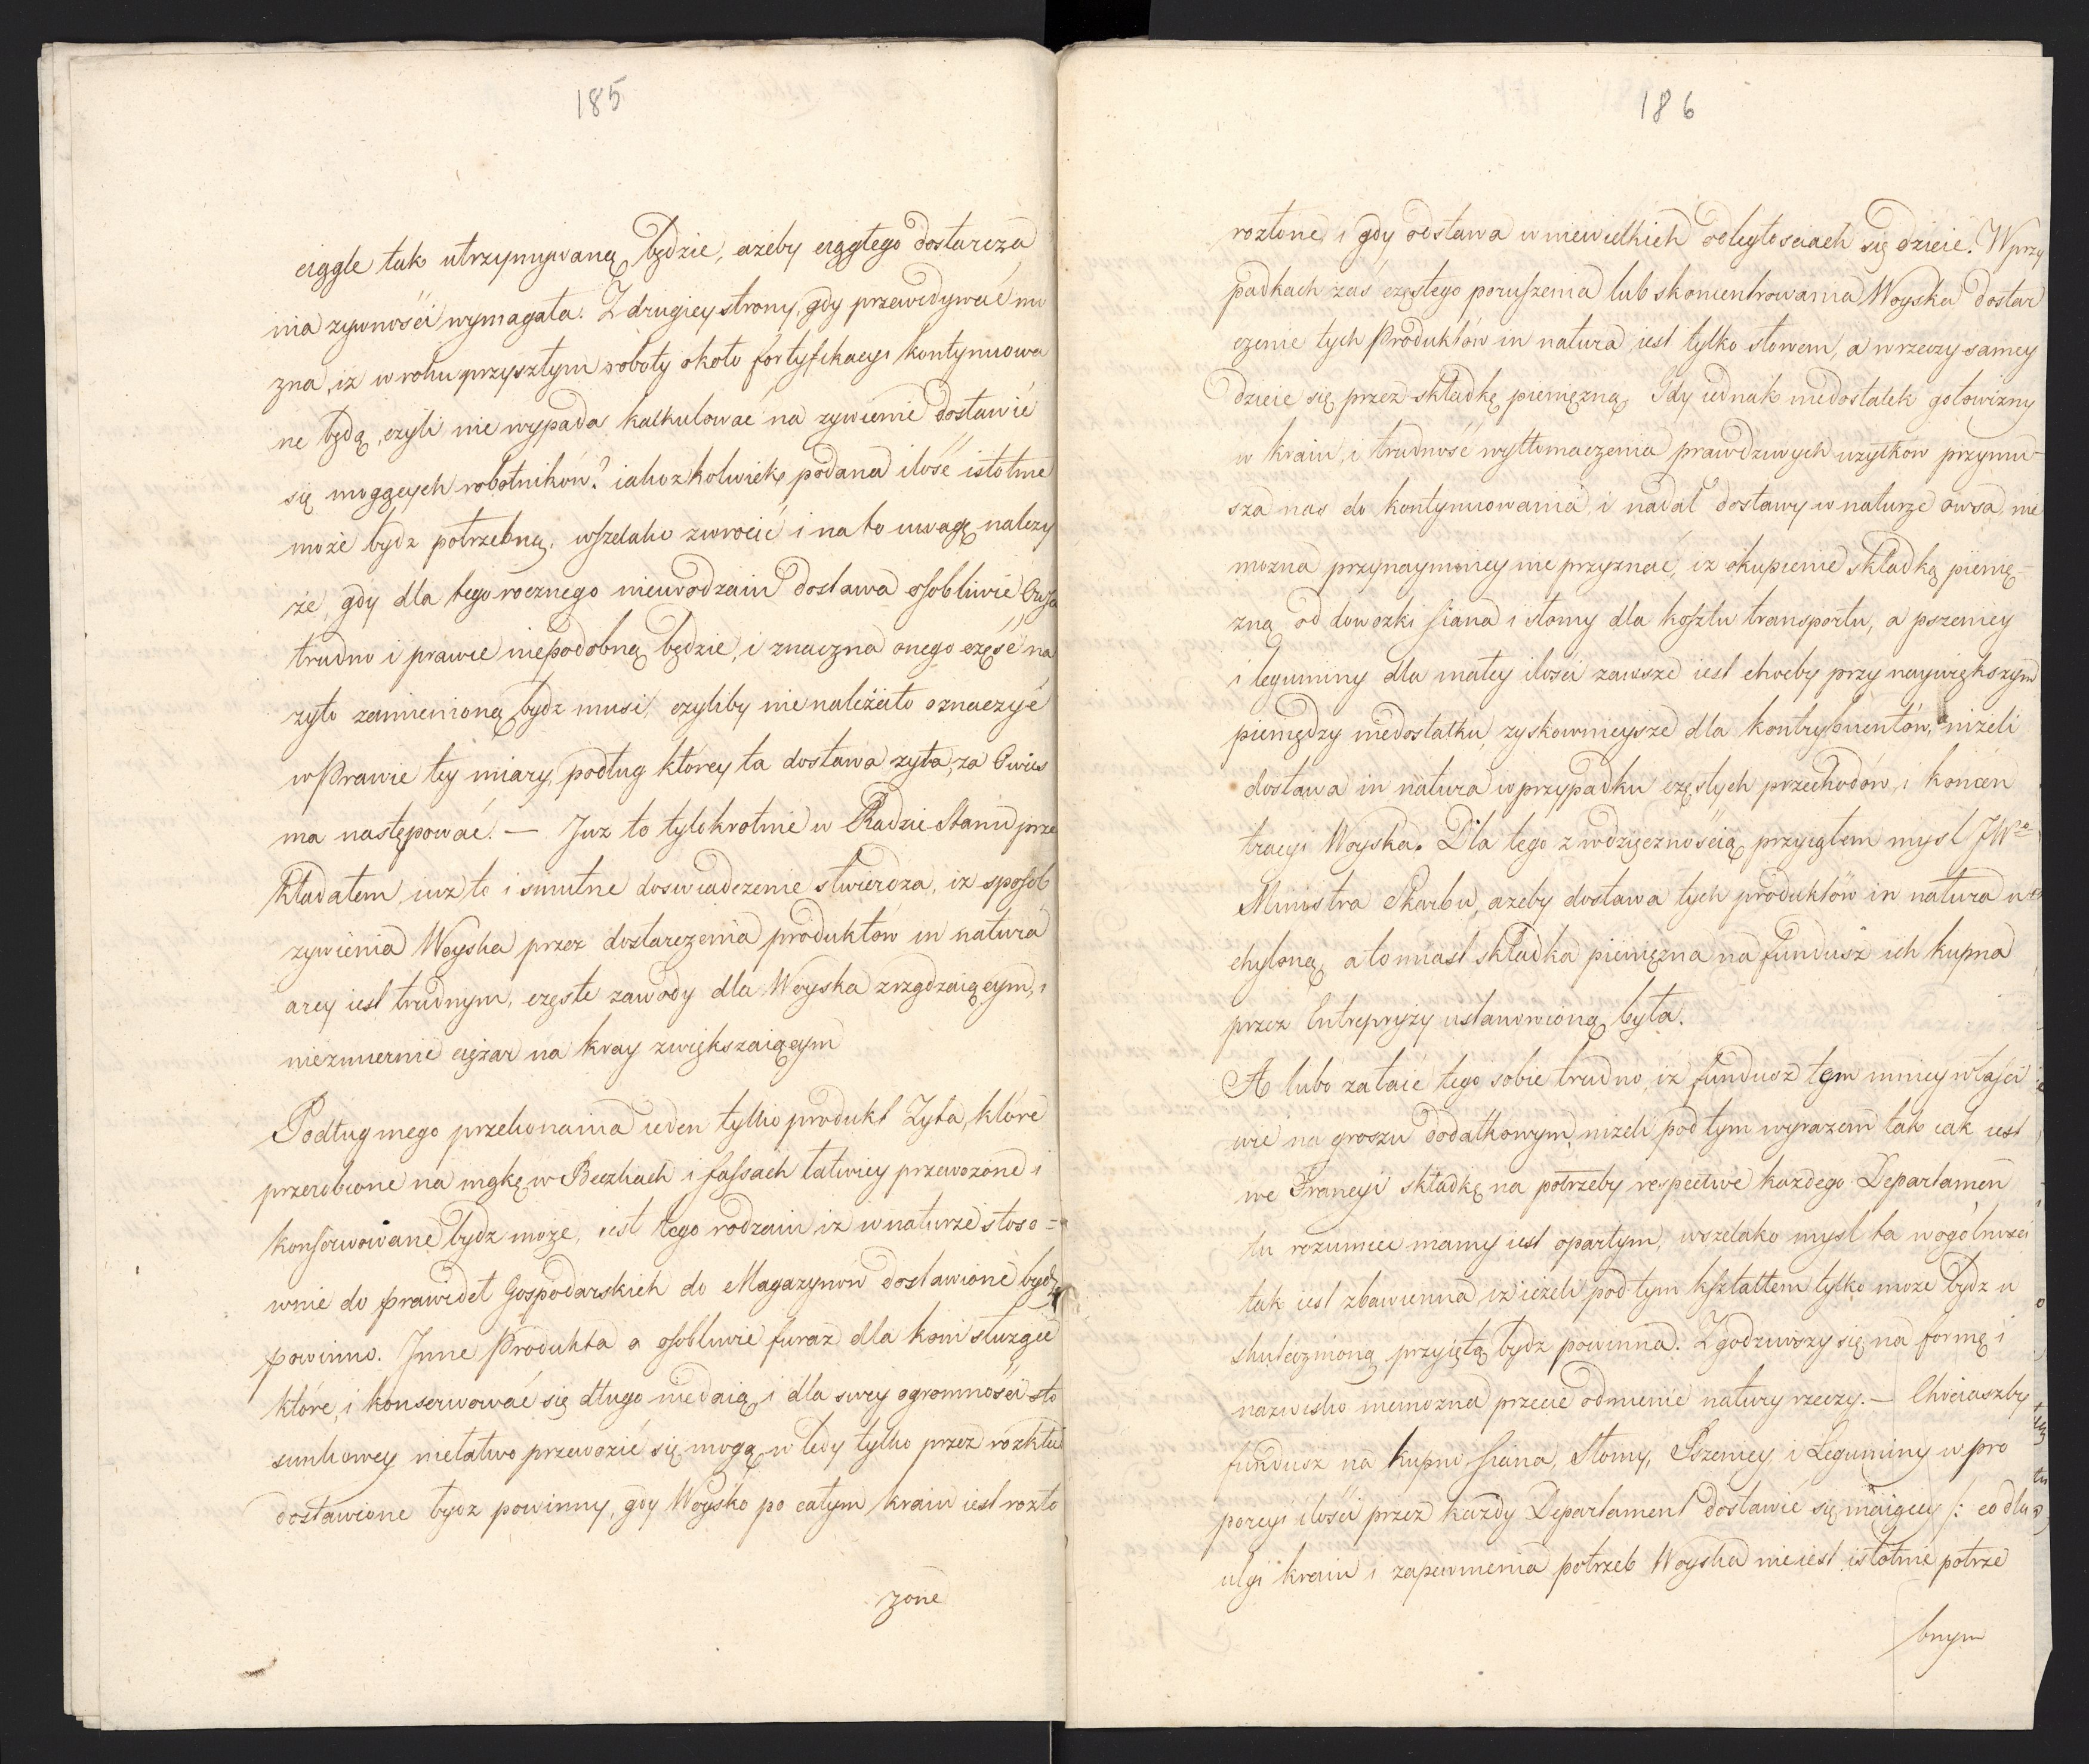 185
ciągle tak utrzymywaną będzie, ażeby ciągłego dostarcza
nia zywności wymagała. Z drugiey strony, gdy przewidywać mo
zna, iz w roku przyszłym roboty około fortyfikacyi kontynuowa
ne będą, czyli nie wypada kalkulować na zywienie dostawić
się mogących robotników? iakozkolwiek podana ilość istotnie
może bydz potrzebną, wszelako zwrocić i na to uwagę nalezy
że, gdy dla tegorocznego nieurodzaiu dostawa osobliwie Owsa
trudno i prawie niepodobną będzie, i znaczna onego część na
zyto zamienioną bydz musi, czyliby nie należało oznaczyć
w Prawie tey miary, podług którey ta dostawa zyta, za Owies
ma następować. — Juz to tylokrotnie w Radzie Stanu prze
kładałem, iuz to i smutne doswiadczenie stwierdza, iz sposób
zywienia Woyska przez dostarczenia produktów in natura
arcy iest trudnym, częste zawody dla Woyska zrządzaiącym, i
niezmiernie ciężar na kray zwiększaiącym
Podług mego przekonania ieden tylko produkt Zyta, które
przerobione na mąkę w Beczkach i fassach łatwiey przewożone i
konserwowane bydz może, iest tego rodzaiu, iz w naturze stoso-
wnie do prawideł Gospodarskich do Magazynow dostawione bydz
powinno. Jnne Produkta a osobliwie furaz dla koni służące
które, i konserwować się długo niedaią, i dla swey ogromności sto
sunkowey niełatwo przewozić się mogą, w tedy tylko przez rozkład
dostawione bydz powinny, gdy Woysko po całym kraiu iest rozło
żone
186
rozłone, i gdy odstawa w niewielkich odległosciach się dzieie. W przy
padkach zaś częstego poruszenia lub skoncentrowania Woyska dostar
czenie tych Produktów in natura, iest tylko słowem, a w rzeczy samey
dzieie się przez składkę pieniężną. Gdy iednak niedostatek gotowizny
w kraiu, i trudność wytłomaczenia prawdziwych uzytkow przymu-
sza nas do kontynuowania, i nadal dostawy w naturze owsa, nie
mozna przynaymniey nie przyznać, iz okupienie składką pienię-
zną od dowozki siana i słomy dla kosztu transportu, a pszenicy
i leguminy dla małey ilości zawsze iest choćby przy naywiększym
pieniędzy niedostatku, zyskownieysze dla kontrybuentów, nizeli
dostawa in natura w przypadku częstych przechodów, i koncen
tracyi Woyska. Dla tego z wdzięcznością przyiąłem mysl JWo
Ministra Skarbu, azeby dostawa tych produktów in natura u
chyloną, a to miast składka pieniężna na fundusz ich kupna
przez Entrepryzy ustanowioną była.
A lubo zataić tego sobie trudno, iz fundusz tem mniey właści
wie na groszu dodatkowym, nizeli pod tym wyrazem tak iak iest
we Francyi składkę na potrzeby respective kazdego Departamen
tu rozumieć mamy iest opartym, wszelako mysl ta w ogólności
tak iest zbawienna iz iezeli pod tym kształtem tylko moze bydz u
skutecznioną, przyiętą bydz powinna. Zgodziwszy się na formę i
nazwisko niemozna przecie odmienić natury rzeczy. — Chociaszby
fundusz na kupno siana, Słomy, Pszenicy i Leguminy w pro
porcyi ilości przez każdy Departament dostawić się maiącey /: co dla
ulgi kraiu i zapewnienia potrzeb Woyska nie iest istotnie potrze
bnym